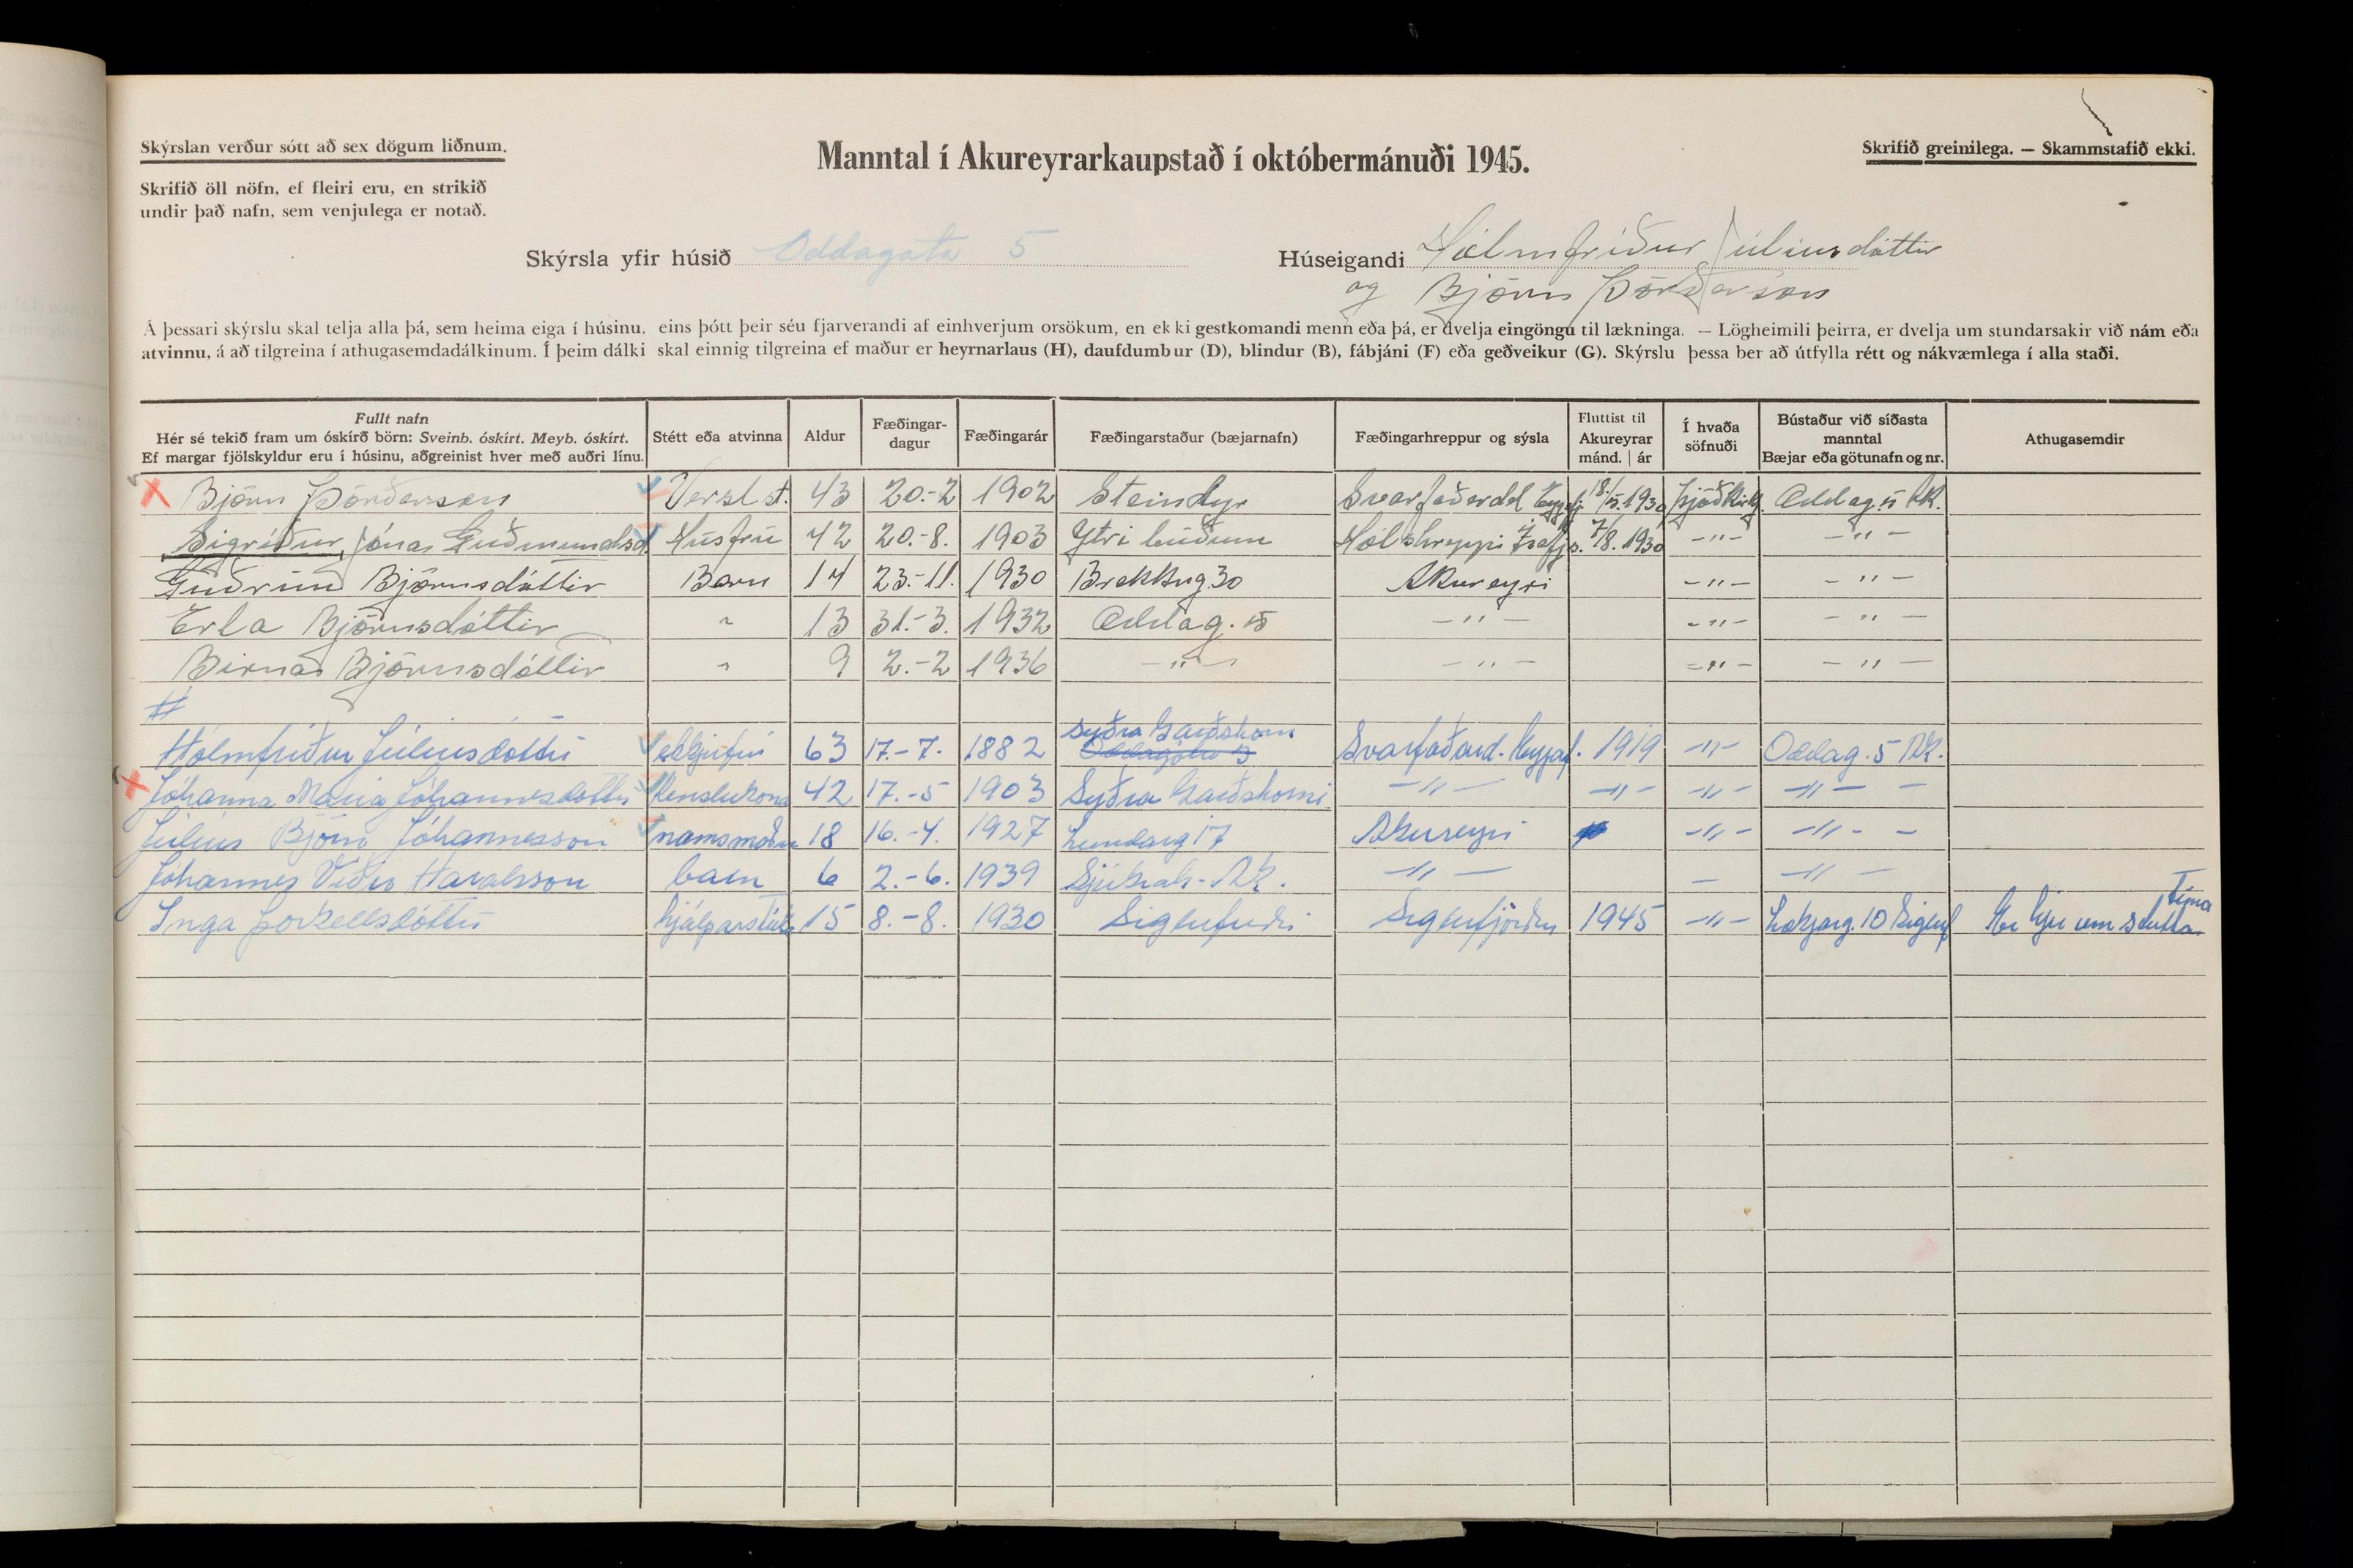 Skýrslan verður sótt að sex dögum liðnum.
Skrifið öll nöfn, ef fleiri eru, en strikið
undir það nafn, sem venjulega er notað.
Manntal í Akureyrarkaupstað í októbermánuði 1945.
Skrifið greinilega. — Skammstafið ekki.
Skýrsla yfir húsið Oddagata 5
Húseigandi Hólmfríður Júlíusdóttir
og Björn Þórðarson
Á þessari skýrslu skal telja alla þá, sem heima eiga í húsinu, eins þótt þeir séu fjarverandi af einhverjum orsökum, en ekki gestkomandi menn eða þá, er dvelja eingöngu til lækninga. — Lögheimili þeirra, er dvelja um stundarsakir við nám eða
atvinnu, á að tilgreina í athugasemdadálkinum. Í þeim dálki skal einnig tilgreina ef maður er heyrnarlaus (H), daufdumbur (D), blindur (B), fábjáni (F) eða geðveikur (G). Skýrslu þessa ber að útfylla rétt og nákvæmlega í alla staði.
Fullt nafn
Hér sé tekið fram um óskírð börn: Sveinb. óskírt. Meyb. óskírt.
Ef margar fjölskyldur eru í húsinu, aðgreinist hver með auðri línu.
Stétt eða atvinna
Aldur
Fæðingar-
dagur
Fæðingarár
Fæðingarstaður (bæjarnafn)
Fæðingarhreppur og sýsla
Fluttist til
Akureyrar
mánd. | ár
Í hvaða
söfnuði
Bústaður við síðasta
manntal
Bæjar eða götunafn og nr.
Athugasemdir
Björn Þórðarson Verzl st. 43 20.-2 1902 Steindyr Svarfaðardal Eyjafj. 18/5.1930 Þjóðkirkj. Oddag. 5 Ak.
Sigríður Jónas Guðmundsd. Húsfrú 42 20.-8. 1903 Ytri búðum Hólshreppi Ísafjs. 7/8. 1930 -"- -"-
Guðrún Björnsdóttir Barn 14 23.-11. 1930 Brekkug. 30 Akureyri -"- -"-
Erla Björnsdóttir " 13 31.-3. 1932 Oddag. 5 -"- -"- -"-
Birna Björnsdóttir " 9 2.-2 1936 -"- -"- -"- -"-
#
Syðra Garðshorn
Hólmfríður Júlíusdóttir ekkjufrú 63 17.-7. 1882 Svarfaðard. Eyjaf. 1919 -"- Oddag. 5 Ak.
Jóhanna María Jóhannesdóttir Kenslukona 42 17.-5 1903 Syðra Garðshorni -"- -"- -"- -"-
Júlíus Björn Jóhannesson námsmaður 18 16.-4. 1927 Lundarg 17 Akureyri -"- -"-
Jóhannes Víðir Haralsson barn 6 2.-6. 1939 Sjúkrah. Ak. -"- - -"-
Inga Þorkellsdóttir hjálparstúlka 15 8.-8. 1930 Siglufirði Siglufjörður 1945 -"- Lækjarg. 10 Sigluf Er hjer um stutta
tíma